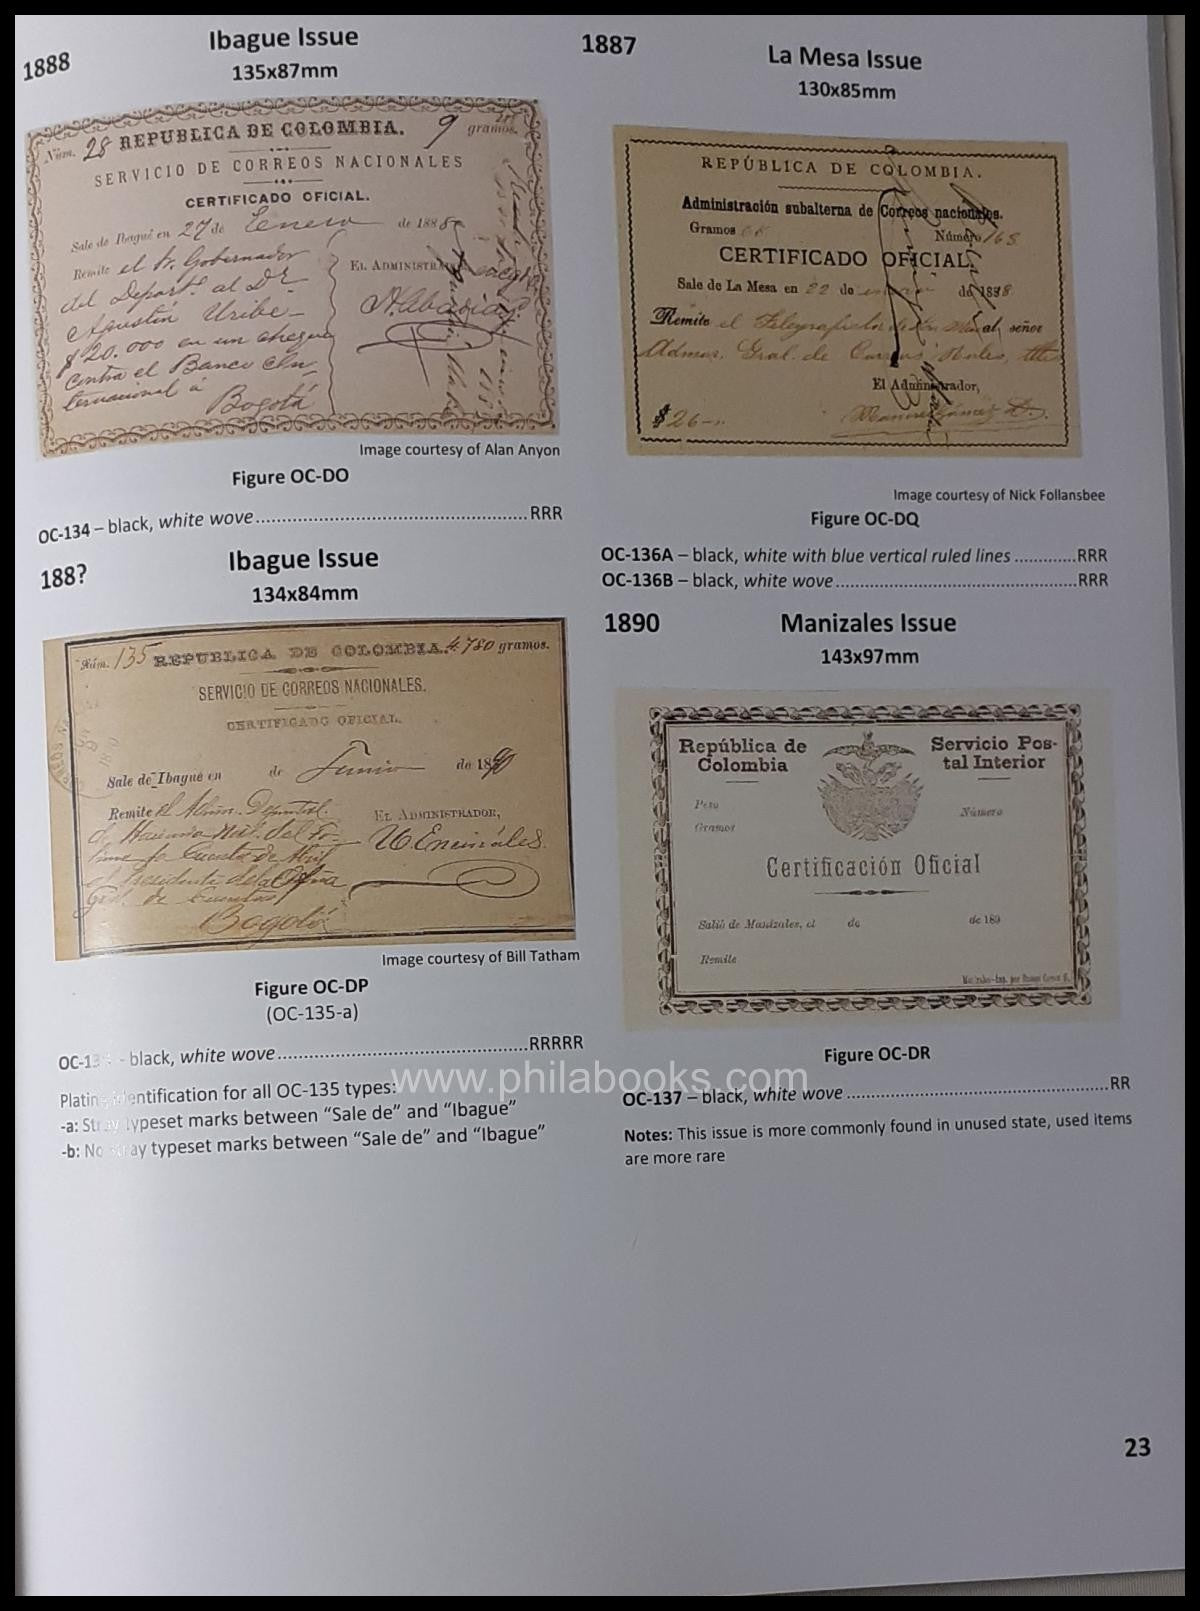 1888
Ibague Issue
135x87mm
Núm. 28 REPUBLICA DE COLOMBIA. 9 gramos.
SERVICIO DE CORREOS NACIONALES
CERTIFICADO OFICIAL.
Sale de Ibagué en 27 de Enero de 188
Remite el Sr. Gobernador
del Depart. al Dr.
Agustín Uribe
$20.000 en un cheque
contra el Banco In-
ternacional á
Bogotá
EL ADMINISTRADOR
Image courtesy of Alan Anyon
Figure OC-DO
OC-134 – black, white wove....................................................RRR
188?
Ibague Issue
134x84mm
Núm. 135 REPUBLICA DE COLOMBIA. 4.780 gramos.
SERVICIO DE CORREOS NACIONALES.
CERTIFICADO OFICIAL.
Sale de_Ibagué en de Junio de 1890
Remite el Admn.
de Hacienda
Cuenta de Abril
el Presidente de la
Gral. de Cuentas
Bogotá
EL ADMINISTRADOR,
Image courtesy of Bill Tatham
Figure OC-DP
(OC-135-a)
OC-13 - black, white wove................................................RRRRR
Plating identification for all OC-135 types:
-a: Stray typeset marks between “Sale de” and “Ibague”
-b: No stray typeset marks between “Sale de” and “Ibague”
1887
La Mesa Issue
130x85mm
REPÚBLICA DE COLOMBIA.
Administración subalterna de Correos nacionales.
Gramos Número 168
CERTIFICADO OFICIAL.
Sale de La Mesa en 22 de de 188
Remite el Telegrafista de al señor
Admor. Gral. de Correos
El Administrador,
$ 26
Image courtesy of Nick Follansbee
Figure OC-DQ
OC-136A – black, white with blue vertical ruled lines ............RRR
OC-136B – black, white wove...............................................RRR
1890
Manizales Issue
143x97mm
República de Colombia
Servicio Pos-tal Interior
Peso
Gramos
Número
Certificación Oficial
Salió de Manizales, el de de 189
Remite
Figure OC-DR
OC-137 – black, white wove ...................................................RR
Notes: This issue is more commonly found in unused state, used items
are more rare
www.philabooks.com
23